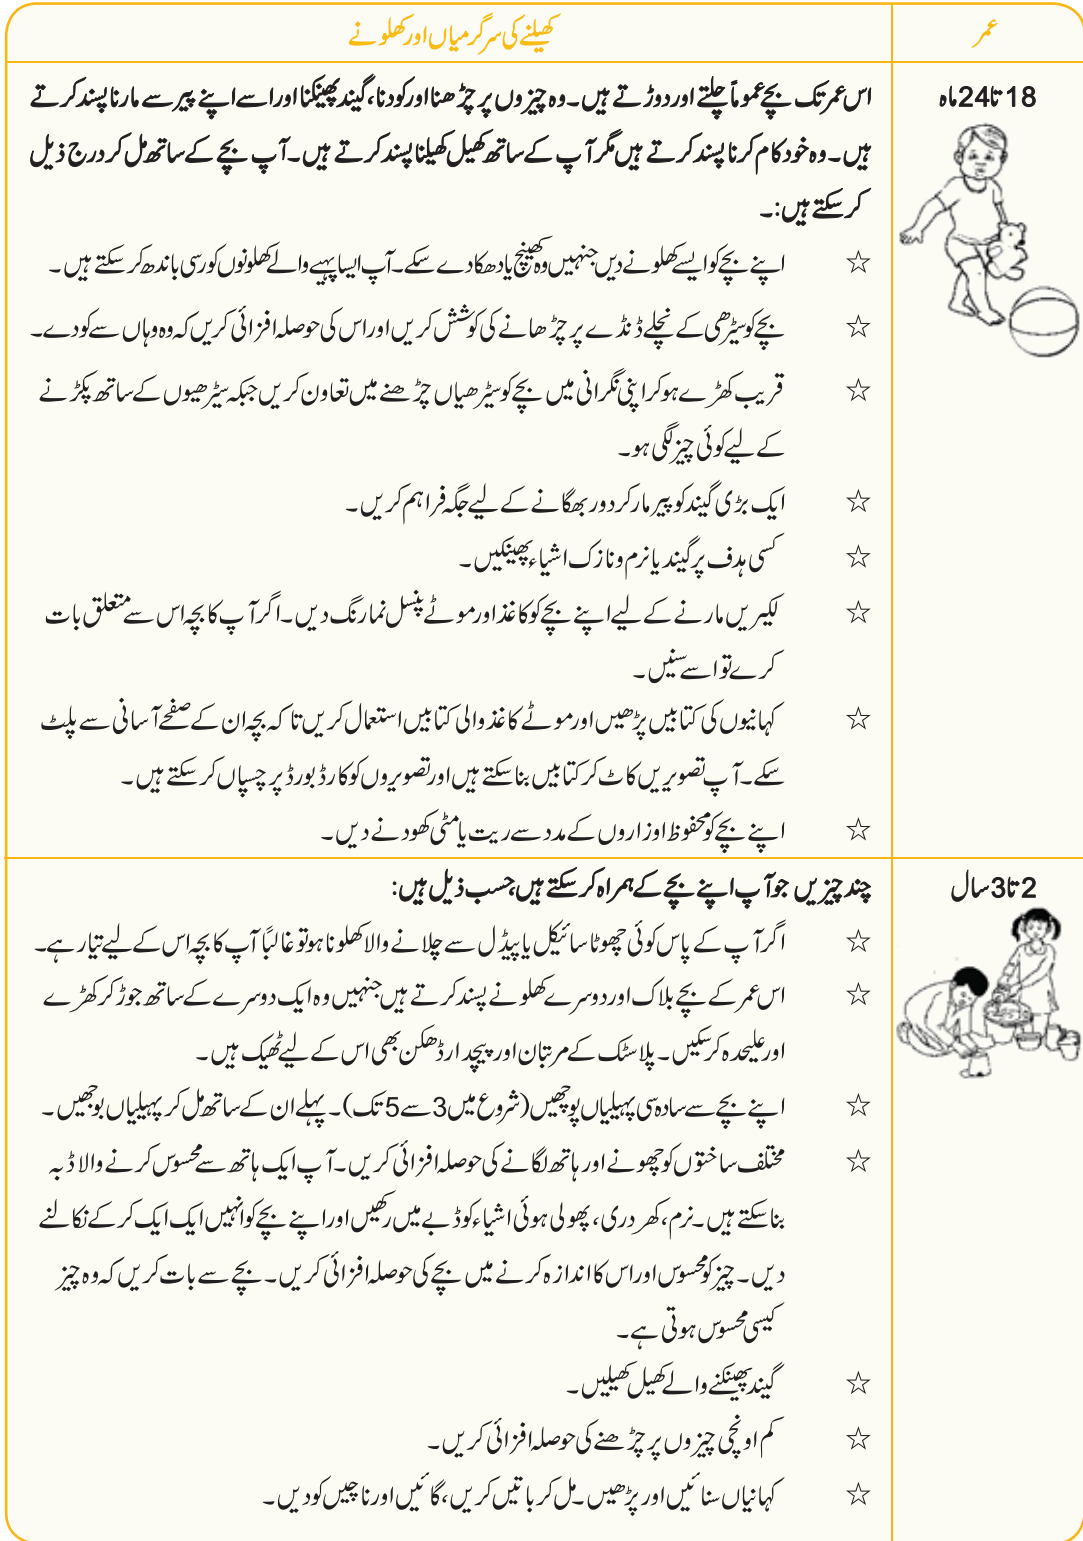 عمر
کھیلنے کی سرگرمیاں اور کھلونے
18 تا 24 ماہ
اس عمر تک بچے عموماً چلتے اور دوڑتے ہیں۔ وہ چیزوں پر چڑھنا اور کودنا، گیند پھینکنا اور اسے اپنے پیر سے مارنا پسند کرتے
ہیں۔ وہ خود کام کرنا پسند کرتے ہیں مگر آپ کے ساتھ کھیل کھیلنا پسند کرتے ہیں۔ آپ بچے کے ساتھ مل کر درج ذیل
کرسکتے ہیں:۔
☆ اپنے بچے کو ایسے کھلونے دیں جنہیں وہ کھینچ یا دھکا دے سکے۔ آپ ایسا پہیے والے کھلونوں کو رسی باندھ کر سکتے ہیں۔
☆ بچے کو سیڑھی کے نچلے ڈنڈے پر چڑھانے کی کوشش کریں اور اس کی حوصلہ افزائی کریں کہ وہ وہاں سے کودے۔
☆ قریب کھڑے ہوکر اپنی نگرانی میں بچے کو سیڑھیاں چڑھنے میں تعاون کریں جبکہ سیڑھیوں کے ساتھ پکڑنے
کے لیے کوئی چیز لگی ہو۔
☆ ایک بڑی گیند کو پیر مار کر دور بھگانے کے لیے جگہ فراہم کریں۔
☆ کسی ہدف پر گیند یا نرم و نازک اشیاء پھینکیں۔
☆ لکیریں مارنے کے لیے اپنے بچے کو کاغذ اور موٹے پنسل نما رنگ دیں۔ اگر آپ کا بچہ اس سے متعلق بات
کرے تو اسے سنیں۔
☆ کہانیوں کی کتابیں پڑھیں اور موٹے کاغذ والی کتابیں استعمال کریں تاکہ بچہ ان کے صفحے آسانی سے پلٹ
سکے۔ آپ تصویریں کاٹ کر کتابیں بناسکتے ہیں اور تصویروں کو کارڈ بورڈ پر چسپاں کر سکتے ہیں۔
☆ اپنے بچے کو محفوظ اوزاروں کے مدد سے ریت یا مٹی کھودنے دیں۔
2 تا 3 سال
چند چیزیں جو آپ اپنے بچے کے ہمراہ کرسکتے ہیں، حسب ذیل ہیں:
☆ اگر آپ کے پاس کوئی چھوٹا سائیکل یا پیڈل سے چلانے والا کھلونا ہو تو غالباً آپ کا بچہ اس کے لیے تیار ہے۔
☆ اس عمر کے بچے بلاک اور دوسرے کھلونے پسند کرتے ہیں جنہیں وہ ایک دوسرے کے ساتھ جوڑ کر کھڑے
اور علیحدہ کرسکیں۔ پلاسٹک کے مرتبان اور پیچدار ڈھکن بھی اس کے لیے ٹھیک ہیں۔
☆ اپنے بچے سے سادہ سی پہیلیاں پوچھیں (شروع میں 3 سے 5 تک)۔ پہلے ان کے ساتھ مل کر پہیلیاں بوجھیں۔
☆ مختلف ساختوں کو چھونے اور ہاتھ لگانے کی حوصلہ افزائی کریں۔ آپ ایک ہاتھ سے محسوس کرنے والا ڈبہ
بناسکتے ہیں۔ نرم، کھردری، پھولی ہوئی اشیاء کو ڈبے میں رکھیں اور اپنے بچے کو انہیں ایک ایک کرکے نکالنے
دیں۔ چیز کو محسوس اور اس کا اندازہ کرنے میں بچے کی حوصلہ افزائی کریں۔ بچے سے بات کریں کہ وہ چیز
کیسی محسوس ہوتی ہے۔
☆ گیند پھینکنے والے کھیل کھیلیں۔
☆ کم اونچی چیزوں پر چڑھنے کی حوصلہ افزائی کریں۔
☆ کہانیاں سنائیں اور پڑھیں۔ مل کر باتیں کریں، گائیں اور ناچیں کودیں۔